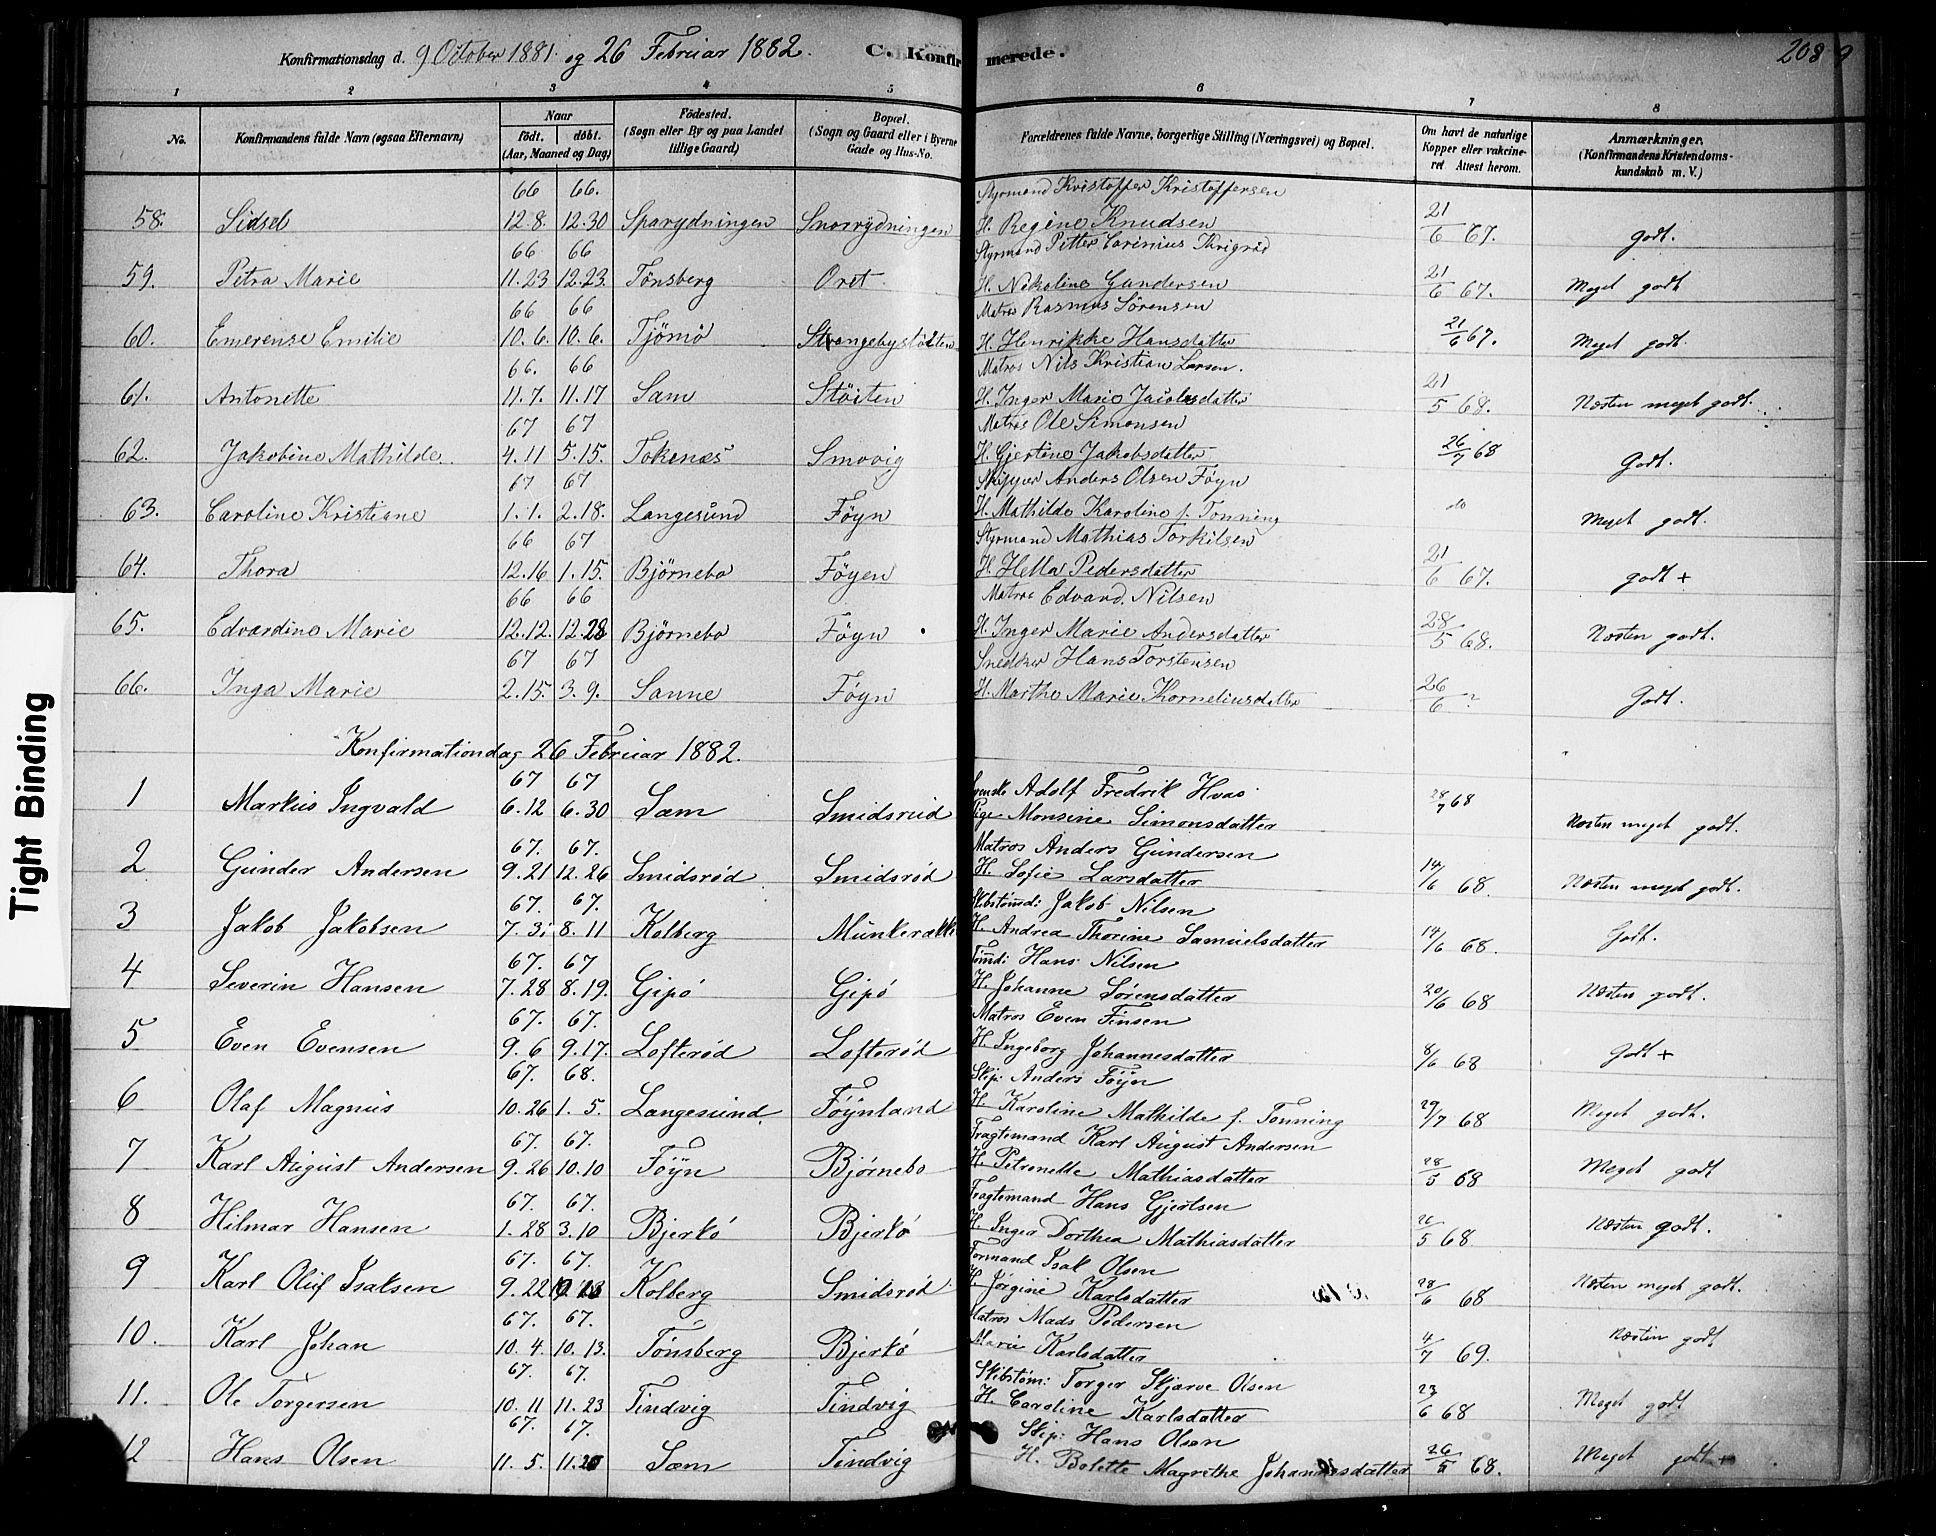 Konfirmationsdag d. 9 October 1881. og 26 Februar 1882. C. Konfirmerede. 208
1 2 3 4 5 6 7 8
No. Konfirmandens fulde Navn (ogsaa Efternavn) Naar født. døbt. (Aar, Maaned og Dag) Fødested. (Sogn eller By og paa Landet tillige Gaard) Bopæl. (Sogn og Gaard eller i Byerne Gade og Hus-No. Forældrenes fulde Navne, borgerlige Stilling (Næringsvei) og Bopæl. Om havt de naturlige Kopper eller vakcineret Attest herom. Anmærkninger. (Konfirmandens Kristendomskundskab m. V.)
66 66. Styrmand Kristoffer Kristoffersen
58. Sidsel 12.8. 12.30 Sparydningen Snorrydningen H. Regine Knudsen 21/6 67. godt.
66 66 Styrmand Petter Carinius
59. Petra Marie 11.23 12.23. Tønsberg Oret H. Nikoline Gundersen 21/6 67. Meget godt
66 66 Matros Rasmus Sørensen
60. Emerense Emilie 10.6. 10.6. Tjømø H. Henrikke Hansdatter 21/6 67. Meget godt.
66. 66 Matros Nils Kristian Larsen.
61. Antonette 11.7. 11.17 Sæm Støiten H. Inger Marie Jacobsdatter 21/5 68. Næsten meget godt.
67 67 Matros Ole Simonsen
62. Jakobine Mathilde. 4.11 5.15. Tokenæs Smovig H. Gjertine Jakobsdatter 26/7 68 Godt.
67 67 Skipper Anders Olsen Føyn
63. Caroline Kristiane 1.1. 2.18. Langesund Føyn H. Mathilde Karoline f. Tonning do Meget godt.
66 67 Styrmand Mathias Torkilsen
64. Thora 12.16 1.15. Bjørnebo Føyen H. Hella Pedersdatter 21/6 67. godt +
66 66 Matros Edvard. Nilsen
65. Edvardine Marie 12.12. 12.28 Bjørnebo Føyn H. Inger Marie Andersdatter 28/5 68. Næsten godt.
67 67 Snedker Hans Torstensen
66. Inga Marie 2.15. 3.9. Sanne Føyn H. Marthe Marie Korneliusdatter 26/6 ? Godt.
Konfirmationdag 26 Februar 1882.
67 67 Adolf Fredrik Hvas
1 Markus Ingvald 6.12 6.30 Sæm Smidsrud Pige Monsine Simonsdatter 28/7 68 Næsten meget godt.
67. 67. Matros Anders Gundersen
2 Gunder Andersen 9.21 12.26 Smidsrød Smidsrød H. Sofie Larsdatter 14/6 68. Næsten meget godt.
67. 67. Skibstømd: Jakob Nilsen
3 Jakob Jakobsen 7.31 8.11 Kolberg Munkerække H. Andrea Thorine Samuelsdatter 14/6 68. Godt.
67. 67 Tømd: Hans Nilsen
4 Severin Hansen 7.28 8.19. Gipø Gipø H. Johanne Sørensdatter 20/6 68 Næsten godt.
67. 67. Matros Even Finsen
5 Even Evensen 9.6 9.17. Lofterød Lofterød H. Ingeborg Johannesdatter 8/6 68 Godt +
67. 68. Skip: Anders Føyn
6 Olaf Magnus 10.26 1.5. Langesund. Føynland H. Karoline Mathilde f. Tonning 29/7 68 Meget godt.
67. 67. Fragtemand Karl August Andersen
7 Karl August Andersen 9.26 10.10 Føyn Bjørnebo H. Petronelle Mathiasdatter 28/5 68 Meget godt
67. 67. Fragtemand Hans Gjertsen
8 Hilmar Hansen 1.28 3.10 Bjerkø Bjerkø H. Inger Dorthea Mathiasdatter 26/5 68 Næsten godt.
67. 67. Formand Isak Olsen
9 Karl Oluf Isaksen 9.22 Kolberg Smidsrød H. Jørgine Karlsdatter 28/6 68 Næsten meget godt.
67. 67. Matros Mads Pedersen
10. Karl Johan 10.4. 10.13. Tønsberg Bjerkø Marie Karlsdatter 4/7 69. Næsten godt
67. 67. Skibstøm: Torger Skjærve Olsen
11. Ole Torgersen 10.11 11.23 Tindvig Tindvig H. Caroline Karlsdatter 23/6 68 Meget godt
67. 67. Skip: Hans Olsen
12 Hans Olsen 11.5. 11.20 Sæm Tindvig H. Bolette Magrethe Johannesdatter 26/5 68. Meget godt +
Tight Binding